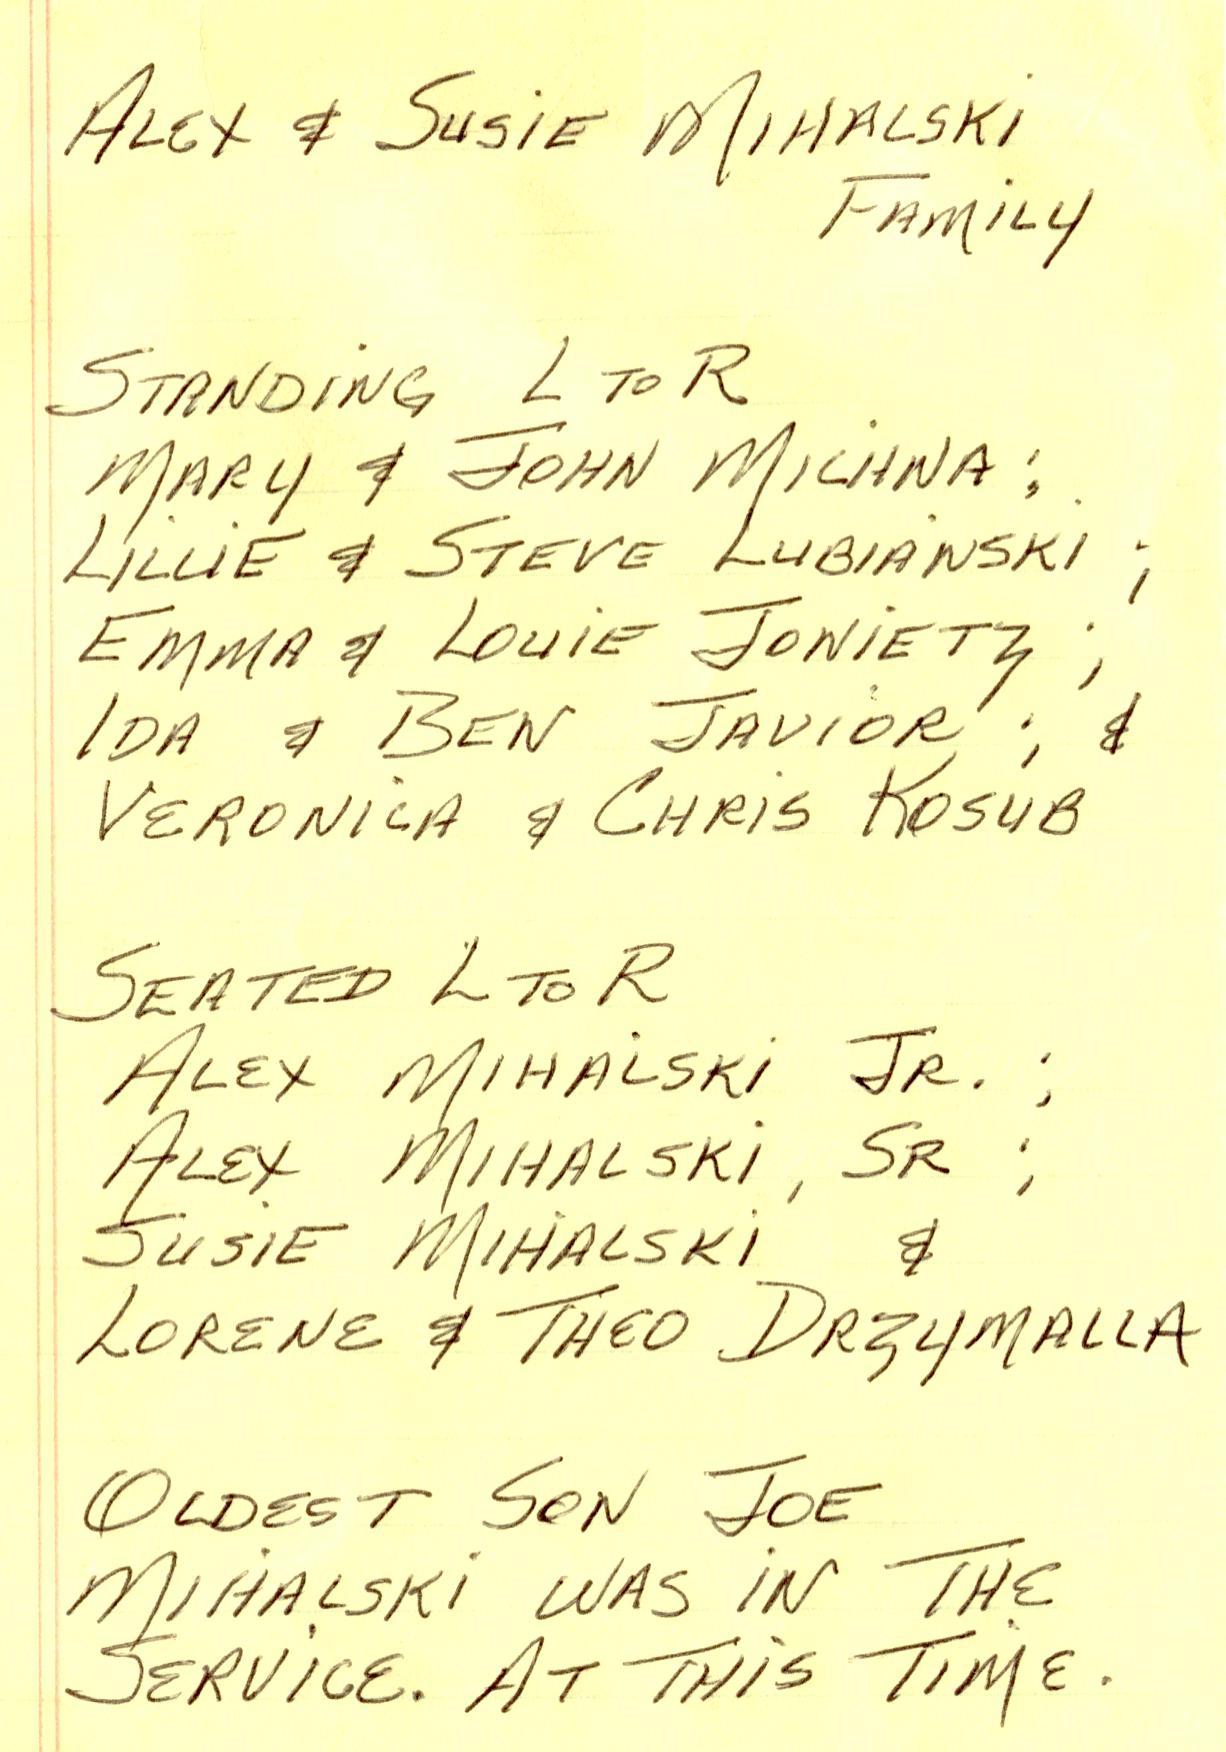 ALEX & SUSIE MIHALSKI
FAMILY
STANDING L TO R
MARY & JOHN MICHNA;
LILLIE & STEVE LUBIANSKI;
EMMA & LOUIE JONIETZ;
IDA & BEN JAVIOR; &
VERONICA & CHRIS KOSUB
SEATED L TO R
ALEX MIHALSKI JR.;
ALEX MIHALSKI, SR;
SUSIE MIHALSKI &
LORENE & THEO DRZYMALLA
OLDEST SON JOE
MIHALSKI WAS IN THE
SERVICE. AT THIS TIME.